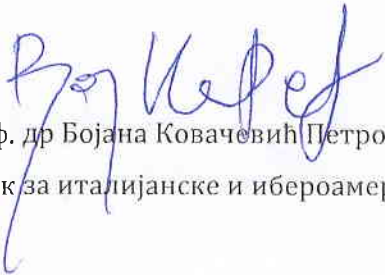 ф. др Бојана Ковачевић Петро
к за италијанске и ибероамер